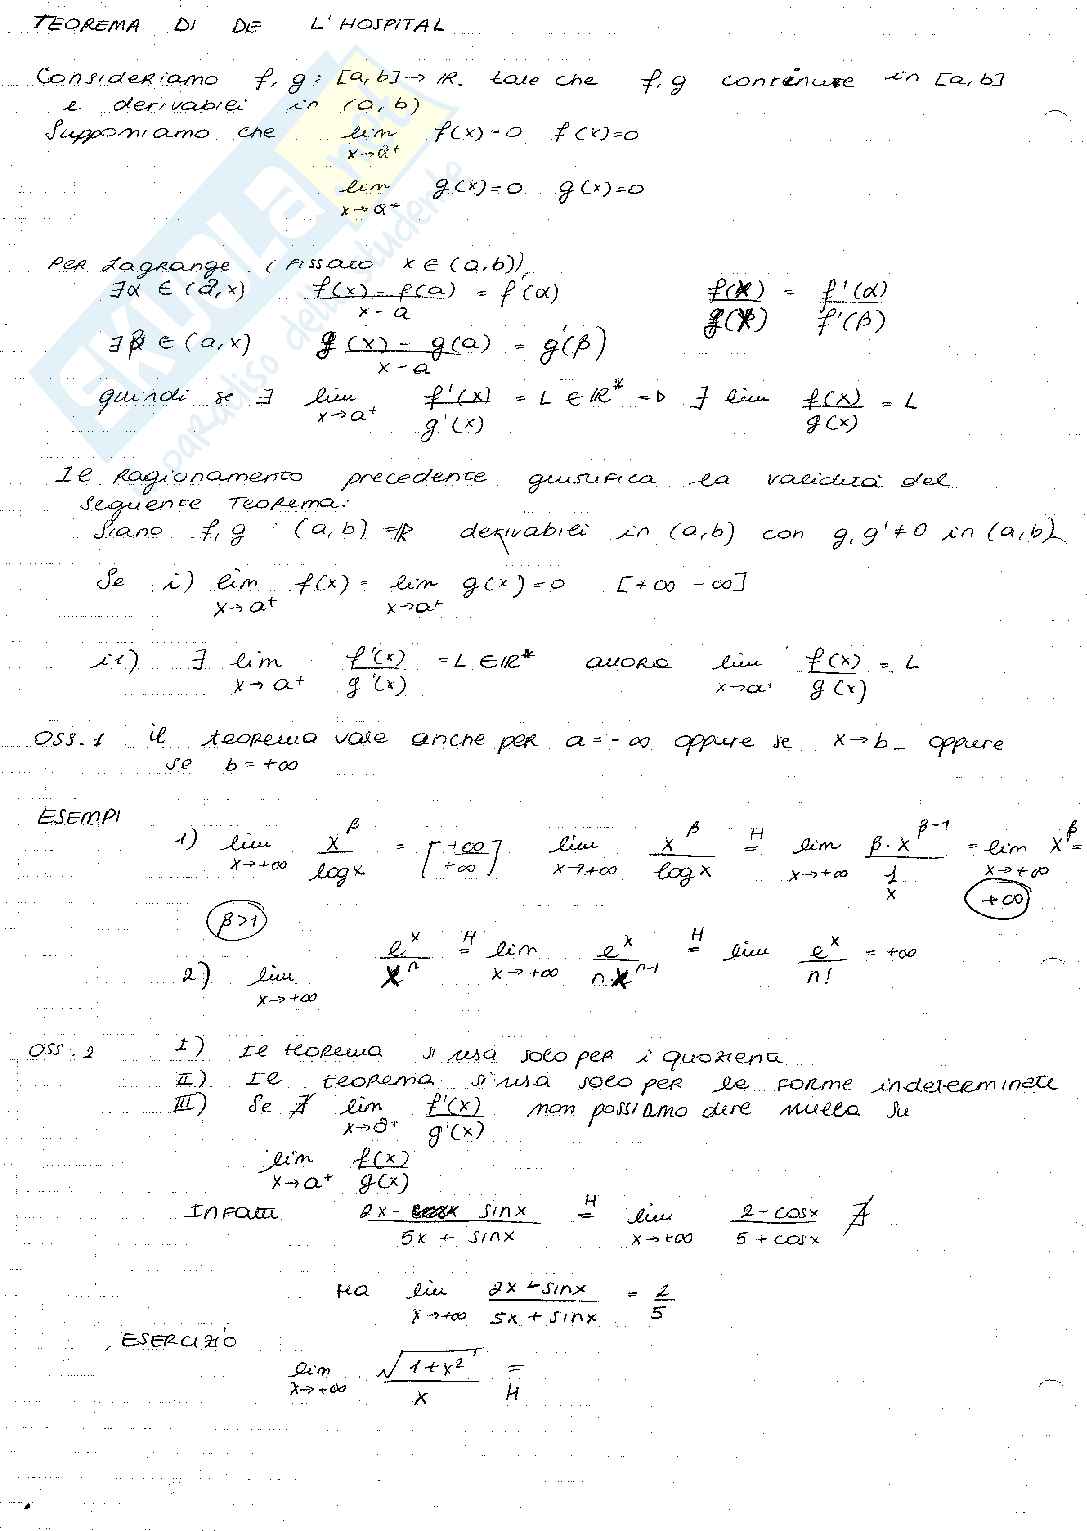 TEOREMA DI DE L'HOSPITAL
Consideriamo f, g : [a,b] → R. tale che f, g continue in [a,b]
e derivabili in (a, b)
Supponiamo che lim x→a⁺ f(x)=0 f(x)=0
lim x→a⁺ g(x)=0 g(x)=0
Per Lagrange (fissato x ∈ (a,b))
∃α ∈ (a,x) (f(x) - f(a))/(x-a) = f'(α) f(x)/g(x) = f'(α)/f'(β)
∃β ∈ (a,x) (g(x) - g(a))/(x-a) = g'(β)
quindi se ∃ lim x→a⁺ f'(x)/g'(x) = L ∈ R* => ∃ lim f(x)/g(x) = L
Il ragionamento precedente giustifica la validità del
seguente Teorema:
Siano f, g : (a,b) → R derivabili in (a,b) con g, g' ≠ 0 in (a,b)
Se i) lim x→a⁺ f(x) = lim x→a⁺ g(x) = 0 [+∞ -∞]
ii) ∃ lim x→a⁺ f'(x)/g'(x) = L ∈ R* allora lim x→a⁺ f(x)/g(x) = L
OSS. 1 il teorema vale anche per a = -∞ oppure se x→b_ oppure
se b = +∞
ESEMPI
1) lim x→+∞ x^β/log x = [+∞/+∞] lim x→+∞ x^β/log x =ᴴ lim x→+∞ β·x^(β-1)/(1/x) = lim x→+∞ x^β =
β>1 +∞
2) lim x→+∞ e^x/x^n =ᴴ lim x→+∞ e^x/(n x^(n-1)) =ᴴ lim e^x/n! = +∞
OSS. 2 I) Il teorema si usa solo per i quozienti
II) Il teorema si usa solo per le forme indeterminate
III) Se ∄ lim x→a⁺ f'(x)/g'(x) non possiamo dire nulla su
lim x→a⁺ f(x)/g(x)
Infatti (2x - sinx)/(5x + sinx) =ᴴ lim x→+∞ (2-cosx)/(5+cosx) ∄
Ma lim x→+∞ (2x - sinx)/(5x + sinx) = 2/5
ESERCIZIO
lim x→+∞ √(1+x²)/x = H
skuola.net
paradiso dello studente